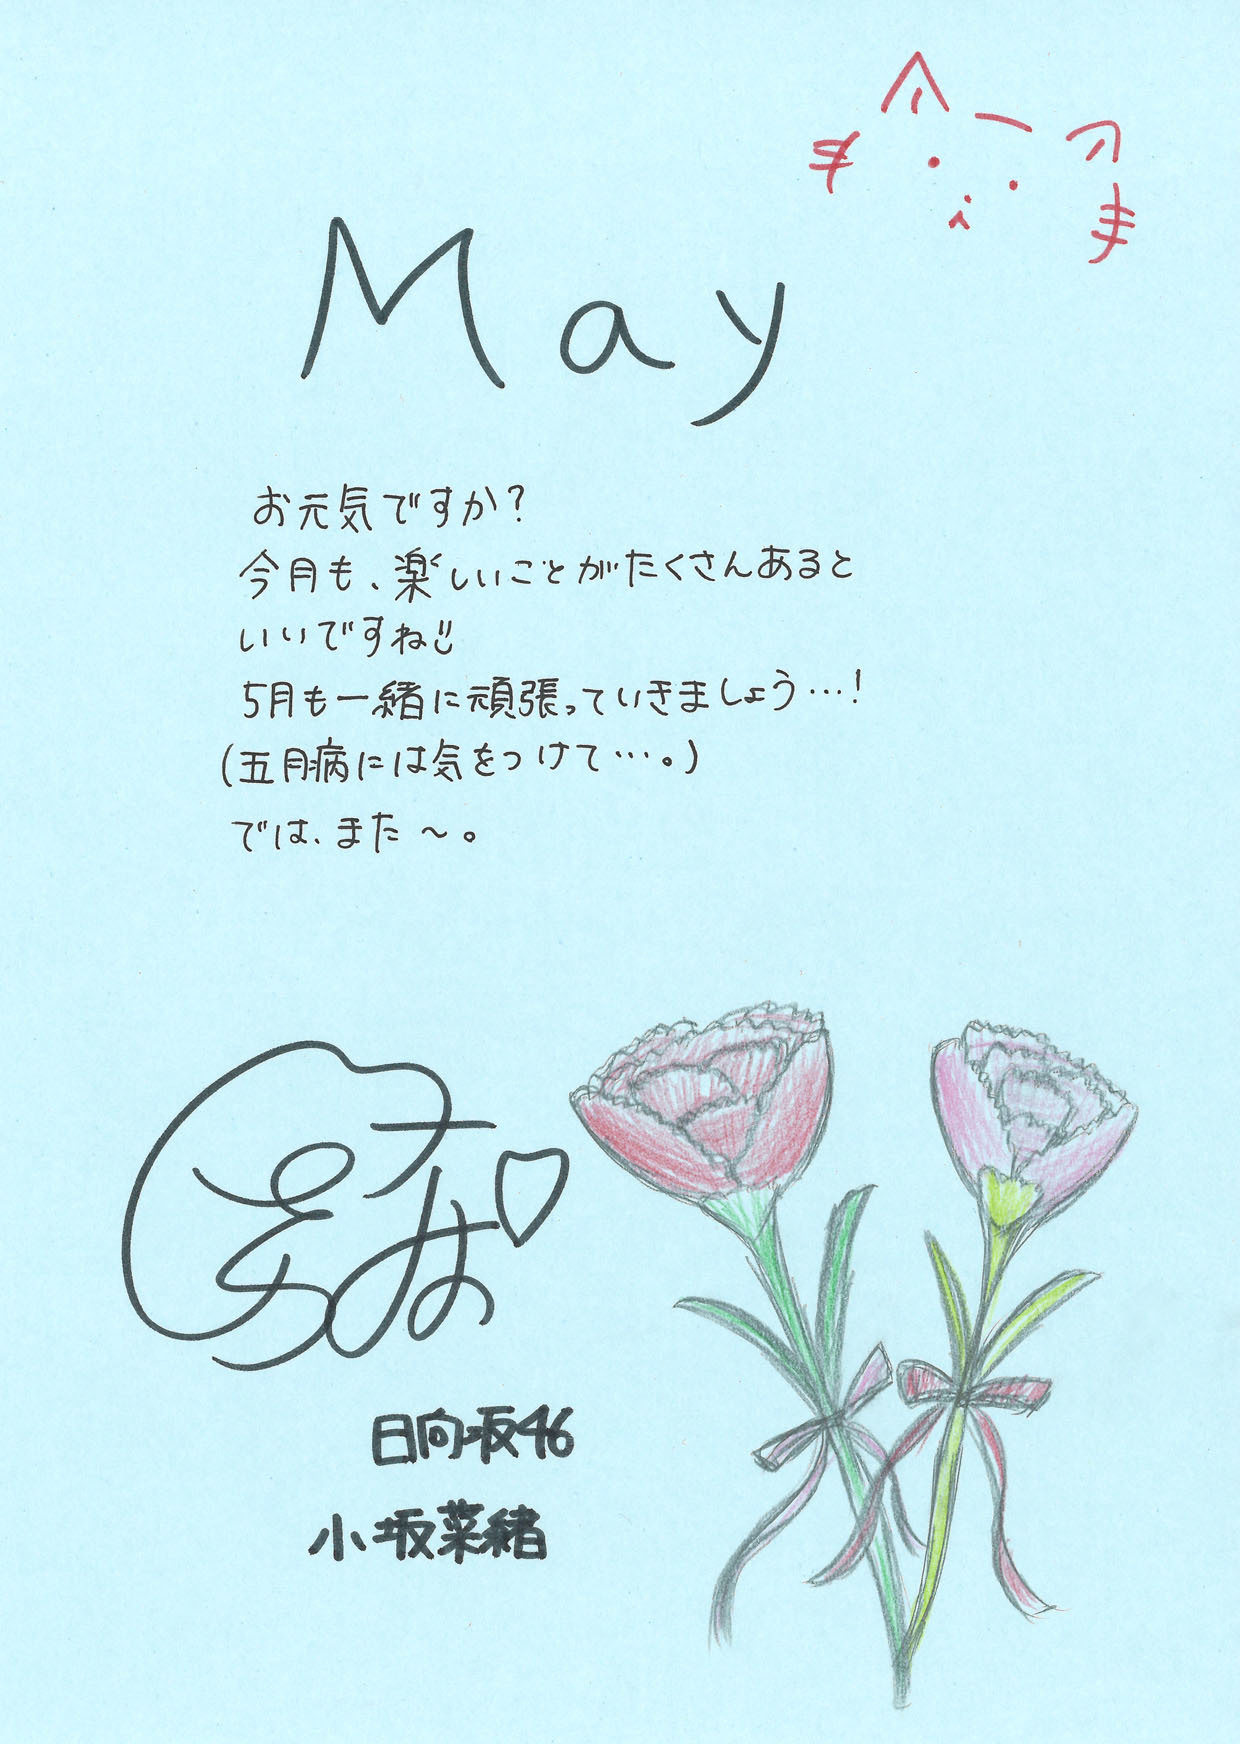 May
お元気ですか?
今月も、楽しいことがたくさんあると
いいですね
5月も一緒に頑張っていきましょう…!
(五月病には気をつけて…。)
では、また～。
日向坂46
小坂菜緒